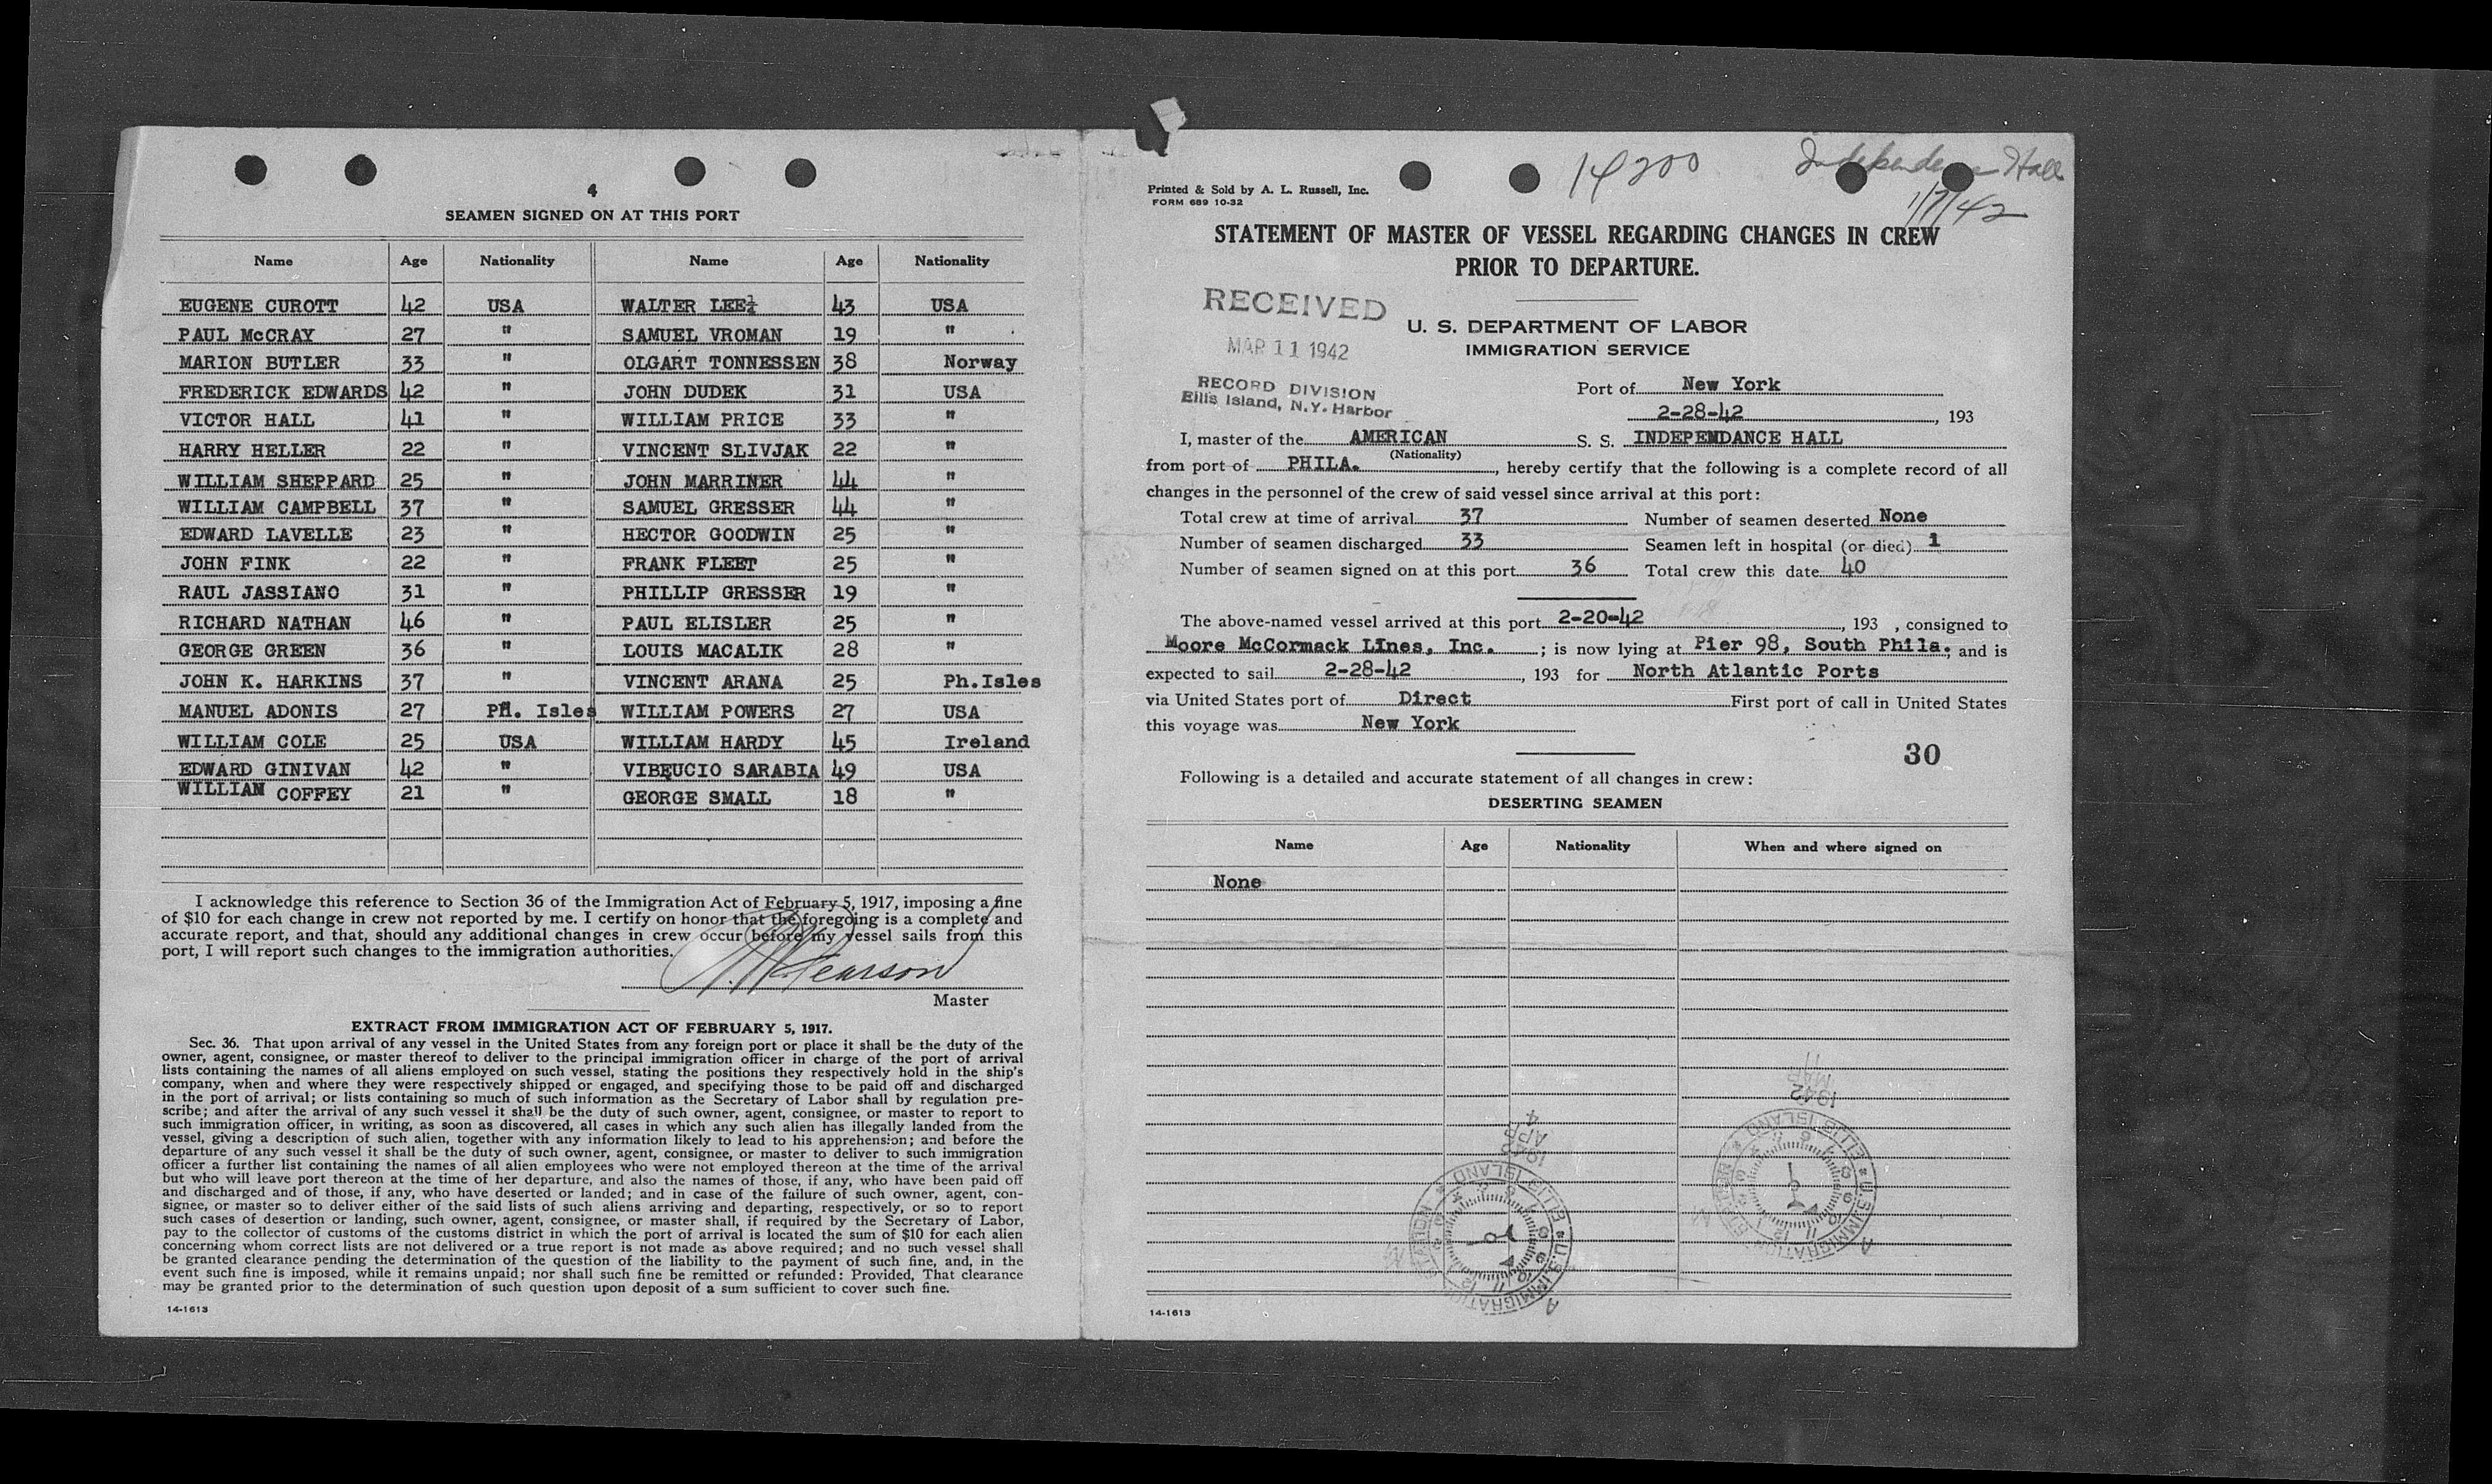 4
SEAMEN SIGNED ON AT THIS PORT
Name Age Nationality Name Age Nationality
EUGENE CUROTT 42 USA WALTER LEE½ 43 USA
PAUL McCRAY 27 " SAMUEL VROMAN 19 "
MARION BUTLER 33 " OLGART TONNESSEN 38 Norway
FREDERICK EDWARDS 42 " JOHN DUDEK 31 USA
VICTOR HALL 41 " WILLIAM PRICE 33 "
HARRY HELLER 22 " VINCENT SLIVJAK 22 "
WILLIAM SHEPPARD 25 " JOHN MARRINER 44 "
WILLIAM CAMPBELL 37 " SAMUEL GRESSER 44 "
EDWARD LAVELLE 23 " HECTOR GOODWIN 25 "
JOHN FINK 22 " FRANK FLEET 25 "
RAUL JASSIANO 31 " PHILLIP GRESSER 19 "
RICHARD NATHAN 46 " PAUL ELISLER 25 "
GEORGE GREEN 36 " LOUIS MACALIK 28 "
JOHN K. HARKINS 37 " VINCENT ARANA 25 Ph.Isles
MANUEL ADONIS 27 PH. Isles WILLIAM POWERS 27 USA
WILLIAM COLE 25 USA WILLIAM HARDY 45 Ireland
EDWARD GINIVAN 42 " VIBEUCIO SARABIA 49 USA
WILLIAM COFFEY 21 " GEORGE SMALL 18 "
I acknowledge this reference to Section 36 of the Immigration Act of February 5, 1917, imposing a fine
of $10 for each change in crew not reported by me. I certify on honor that the foregoing is a complete and
accurate report, and that, should any additional changes in crew occur before my vessel sails from this
port, I will report such changes to the immigration authorities.
Pearson
Master
EXTRACT FROM IMMIGRATION ACT OF FEBRUARY 5, 1917.
Sec. 36. That upon arrival of any vessel in the United States from any foreign port or place it shall be the duty of the
owner, agent, consignee, or master thereof to deliver to the principal immigration officer in charge of the port of arrival
lists containing the names of all aliens employed on such vessel, stating the positions they respectively hold in the ship's
company, when and where they were respectively shipped or engaged, and specifying those to be paid off and discharged
in the port of arrival; or lists containing so much of such information as the Secretary of Labor shall by regulation pre-
scribe; and after the arrival of any such vessel it shall be the duty of such owner, agent, consignee, or master to report to
such immigration officer, in writing, as soon as discovered, all cases in which any such alien has illegally landed from the
vessel, giving a description of such alien, together with any information likely to lead to his apprehension; and before the
departure of any such vessel it shall be the duty of such owner, agent, consignee, or master to deliver to such immigration
officer a further list containing the names of all alien employees who were not employed thereon at the time of the arrival
but who will leave port thereon at the time of her departure, and also the names of those, if any, who have been paid off
and discharged and of those, if any, who have deserted or landed; and in case of the failure of such owner, agent, con-
signee, or master so to deliver either of the said lists of such aliens arriving and departing, respectively, or so to report
such cases of desertion or landing, such owner, agent, consignee, or master shall, if required by the Secretary of Labor,
pay to the collector of customs of the customs district in which the port of arrival is located the sum of $10 for each alien
concerning whom correct lists are not delivered or a true report is not made as above required; and no such vessel shall
be granted clearance pending the determination of the question of the liability to the payment of such fine, and, in the
event such fine is imposed, while it remains unpaid; nor shall such fine be remitted or refunded: Provided, That clearance
may be granted prior to the determination of such question upon deposit of a sum sufficient to cover such fine.
14-1613
14200 Independence Hall
1/7/42
Printed & Sold by A. L. Russell, Inc.
FORM 689 10-32
STATEMENT OF MASTER OF VESSEL REGARDING CHANGES IN CREW
PRIOR TO DEPARTURE.
RECEIVED
MAR 11 1942
RECORD DIVISION
Ellis Island, N.Y. Harbor
U. S. DEPARTMENT OF LABOR
IMMIGRATION SERVICE
Port of New York
2-28-42, 193
I, master of the AMERICAN S. S. INDEPENDANCE HALL
(Nationality)
from port of PHILA., hereby certify that the following is a complete record of all
changes in the personnel of the crew of said vessel since arrival at this port:
Total crew at time of arrival 37 Number of seamen deserted None
Number of seamen discharged 33 Seamen left in hospital (or died) 1
Number of seamen signed on at this port 36 Total crew this date 40
The above-named vessel arrived at this port 2-20-42, 193 , consigned to
Moore McCormack LInes, Inc. ; is now lying at Pier 98, South Phila.; and is
expected to sail 2-28-42, 193 for North Atlantic Ports
via United States port of Direct First port of call in United States
this voyage was New York
30
Following is a detailed and accurate statement of all changes in crew:
DESERTING SEAMEN
Name Age Nationality When and where signed on
None
MAR 11
1942
U.S. IMMIGRATION STATION ELLIS ISLAND
APR 4
1942
U.S. IMMIGRATION STATION ELLIS ISLAND
14-1613